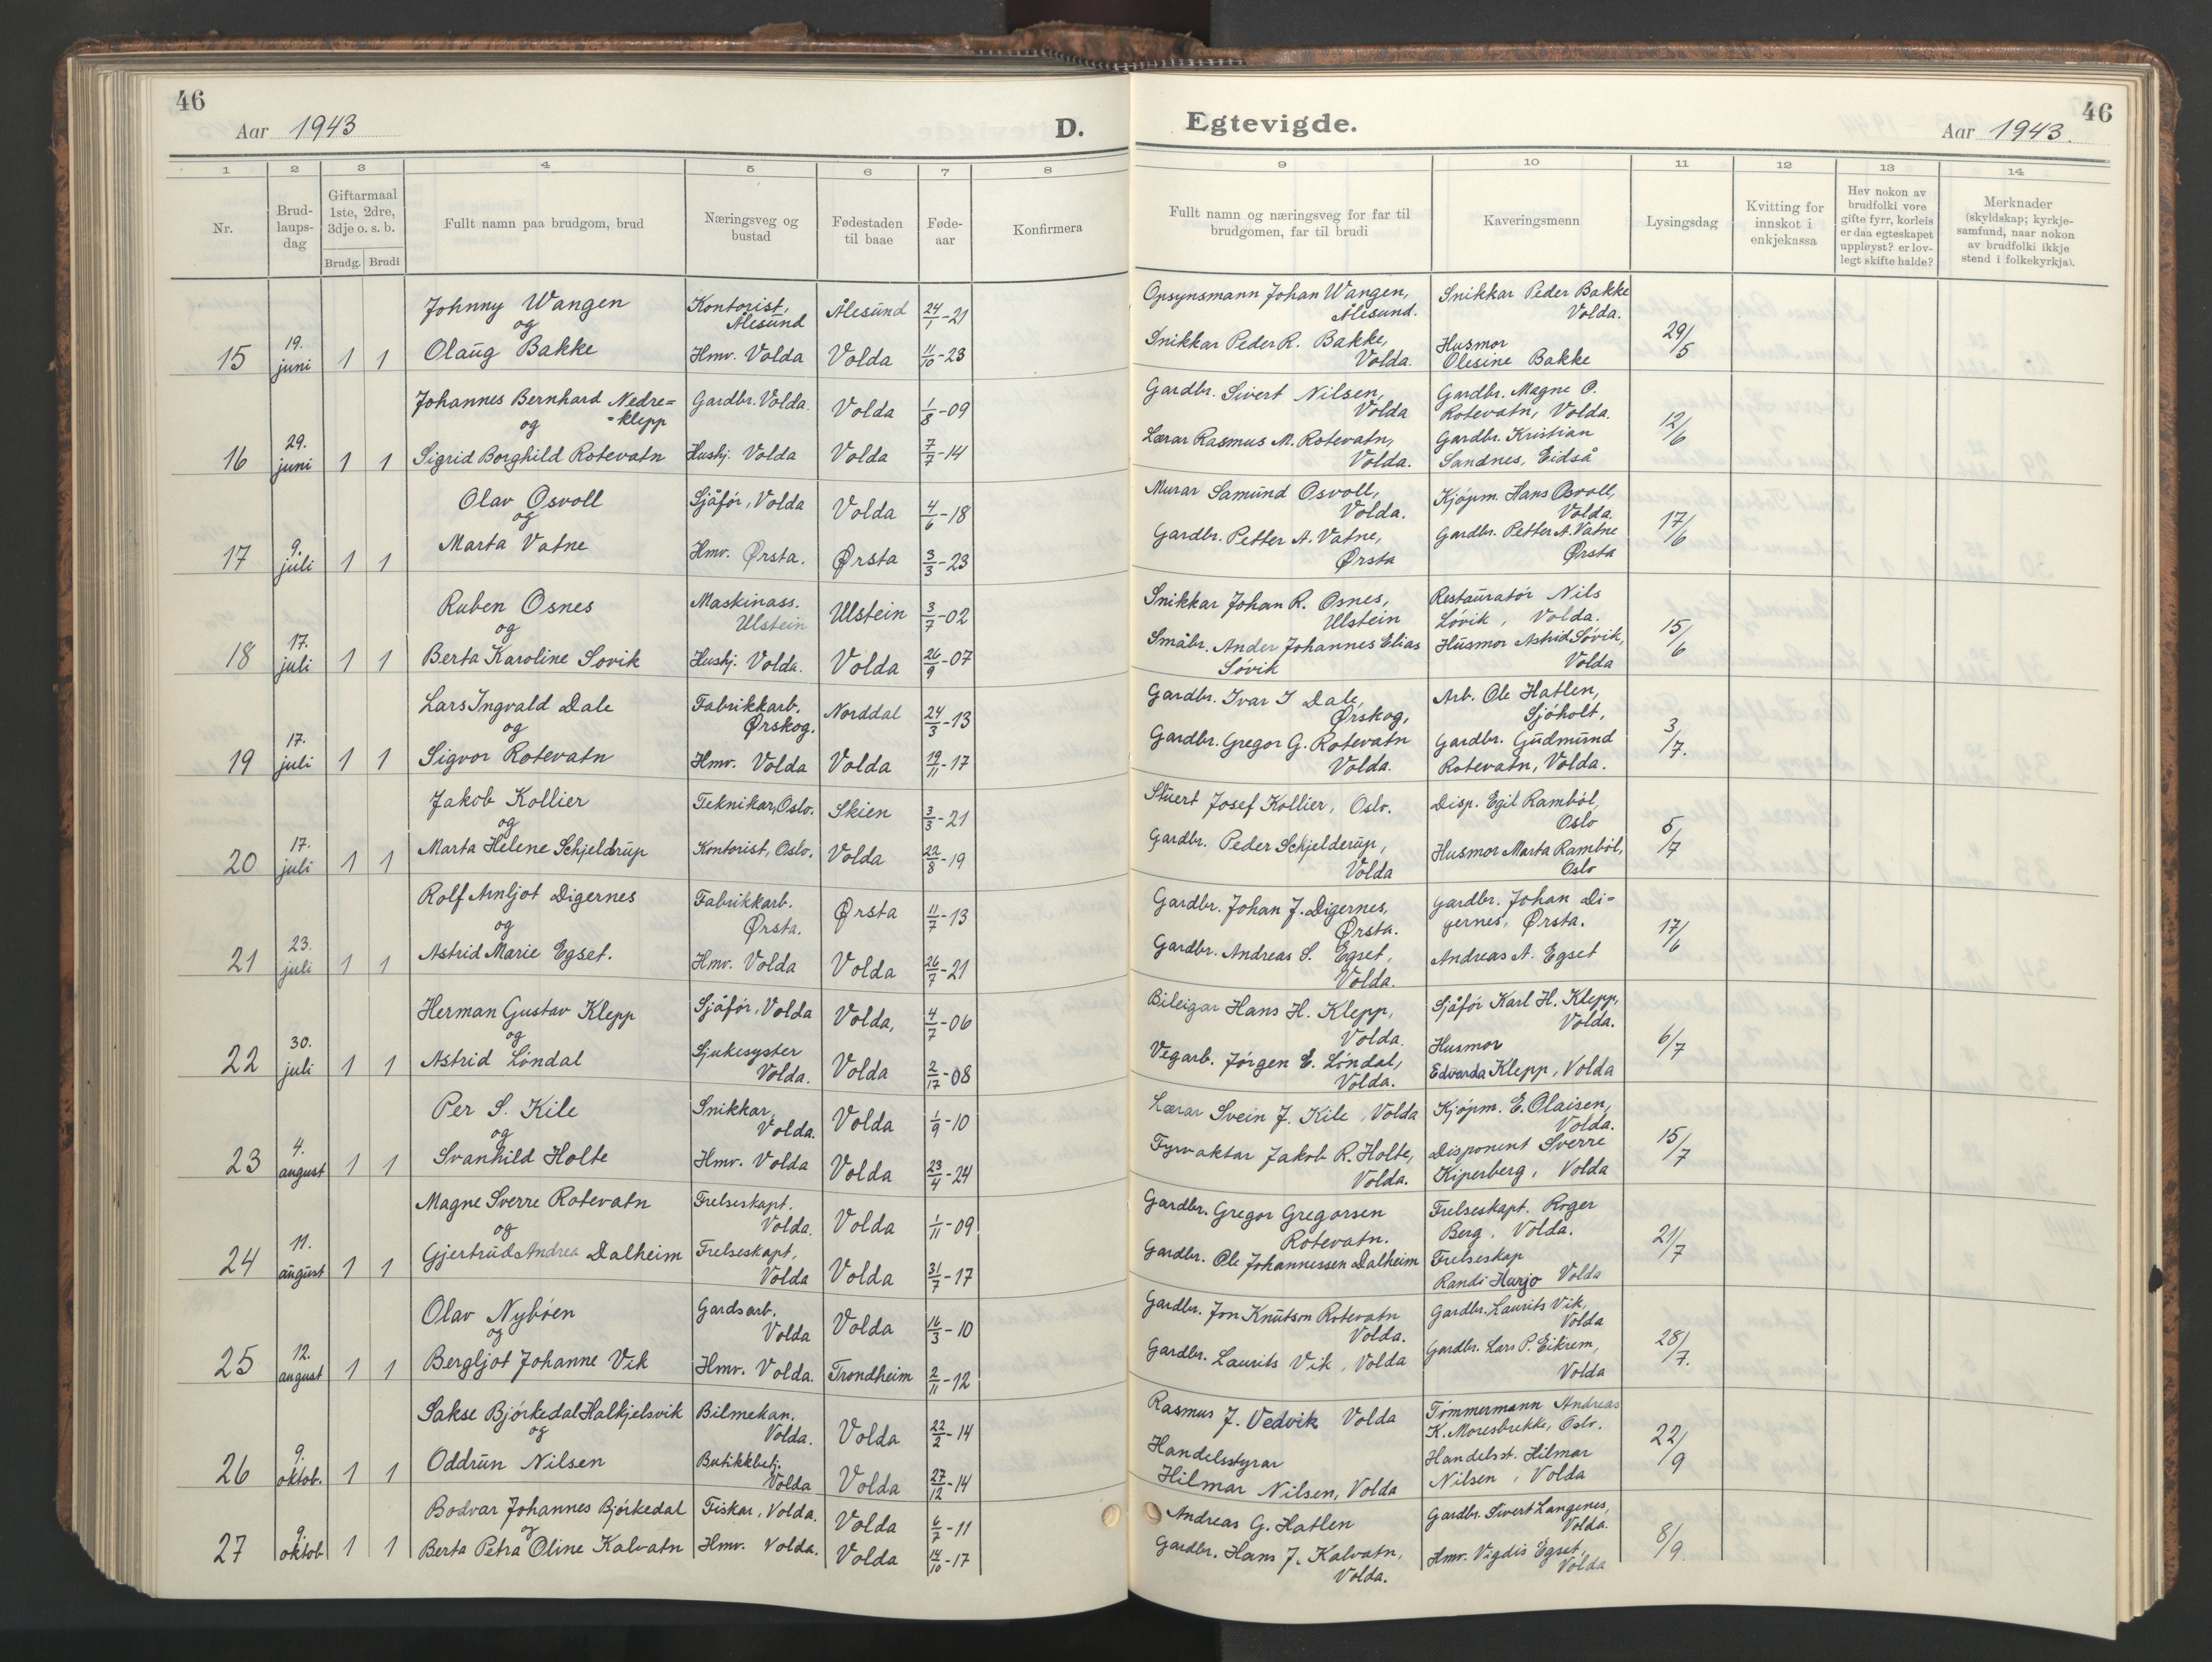 46
Aar 1943
D.
1 2 3 4 5 6 7 8
Nr.
Brud-
laups-
dag
Giftarmaal
1ste, 2dre,
3dje o. s. b.
Brudg. Brudi
Fullt namn paa brudgom, brud
Næringsveg og
bustad
Fødestaden
til baae
Føde-
aar
Konfirmera
Johnny Wangen Kontorist, Ålesund Ålesund 24/1-21
og
15 19. juni 1 1 Olaug Bakke Hmv. Volda Volda 11/10-23
Johannes Bernhard Nedre= Gardbr. Volda. Volda 1/8-09
=klepp
og
16 29. juni 1 1 Sigrid Borghild Rotevatn Hushj. Volda Volda 7/7-14
Olav Osvoll Sjåfør, Volda Volda 4/6-18
og
17 9. juli 1 1 Marta Vatne Hmv. Ørsta. Ørsta 3/3-23
Ruben Osnes Maskinass. Ulstein Ulstein 3/7-02
og
18 17. juli 1 1 Berta Karoline Sovik Hushj. Volda. Volda 26/9-07
Lars Ingvald Dale Fabrikkarb. Ørskog. Norddal 24/3-13
og
19 17. juli 1 1 Sigvor Rotevatn Hmv. Volda Volda 19/11-17
Jakob Kollier Teknikar, Oslo. Skien 3/3-21
og
20 17. juli 1 1 Marta Helene Schjeldrup Kontorist, Oslo. Volda 22/8-19
Rolf Arnljot Digernes Fabrikkarb. Ørsta. Ørsta 11/7-13
og
21 23. juli 1 1 Astrid Marie Egset. Hmv. Volda Volda 26/7-21
Herman Gustav Klepp Sjåfør, Volda Volda, 4/7-06
og
22 30. juli 1 1 Astrid Løndal Sjukesyster Volda. Volda 2/17-08
Per S. Kile Snikkar, Volda. Volda 1/9-10
og
23 4. august 1 1 Svanhild Holte Hmv. Volda Volda 23/4-24
Magne Sverre Rotevatn Frelseskapt. Volda. Volda 1/11-09
og
24 11. august 1 1 Gjertrud Andrea Dalheim Frelseskapt, Volda Volda 31/7-17
Olav Nybøen Gardsarb. Volda Volda 16/3-10
og
25 12. august 1 1 Bergljot Johanne Vik Hmv. Volda. Trondheim 2/11-12
Sakse Bjørkedal Halkjelsvik Bilmekan. Volda. Volda 22/2-14
og
26 9. oktob. 1 1 Oddrun Nilsen Butikkbetj. Volda Volda 27/12-14
Bodvar Johannes Bjørkedal Fiskar, Volda. Volda 6/7-11
og
27 9. oktob 1 1 Berta Petra Oline Kalvatn Hmv. Volda. Volda 14/10-17
Egtevigde.
46
Aar 1943.
9 10 11 12 13 14
Fullt namn og næringsveg for far til
brudgomen, far til brudi
Kaveringsmenn
Lysingsdag
Kvitting for
innskot i
enkjekassa
Hev nokon av
brudfolki vore
gifte fyrr, korleis
er daa egteskapet
uppløyst? er lov-
legt skifte halde?
Merknader
(skyldskap; kyrkje-
samfund, naar nokon
av brudfolki ikkje
stend i folkekyrkja).
Opsynsmann Johan Wangen, Snikkar Peder Bakke
Ålesund. Volda.
Snikkar Peder R. Bakke, Husmor 29/5
Volda. Olesine Bakke
Gardbr. Sivert Nilsen, Gardbr. Magne O.
Volda Rotevatn, Volda. 12/6
Lærar Rasmus M. Rotevatn, Gardbr. Kristian
Volda. Sandnes, Eidså
Murar Samund Osvoll, Kjøpm. Hans Osvoll,
Volda. Volda. 17/6
Gardbr. Petter A. Vatne, Gardbr. Petter A. Vatne
Ørsta Ørsta
Snikkar Johan R. Osnes, Restauratør Nils
Ulstein Løvik, Volda. 15/6
Småbr. Ander Johannes Elias Husmor Astrid Søvik,
Søvik Volda
Gardbr. Ivar I Dale, Arb. Ole Hatlen,
Ørskog, Sjøholt, 3/7.
Gardbr. Gregor G. Rotevatn Gardbr. Gudmund
Volda. Rotevatn, Volda.
Stuert Josef Kollier, Oslo. Disp. Egil Rambøl,
Oslo 5/7
Gardbr. Peder Schjelderup, Husmor Marta Rambøl,
Volda Oslo
Gardbr. Johan J. Digernes, Gardbr. Johan Di-
Ørsta. gernes, Ørsta. 17/6
Gardbr. Andreas S. Egset, Andreas A. Egset
Volda.
Bileigar Hans H. Klepp, Sjåfør Karl H. Klepp,
Volda. Volda.
Vegarb. Jørgen E. Løndal, Husmor 6/7
Volda. Edvarda Klepp, Volda
Lærar Svein J. Kile, Volda Kjøpm. E. Olaisen,
Volda.
Fyrvaktar Jakob R. Holte, Disponent Sverre 15/7
Volda. Kiperberg, Volda
Gardbr. Gregor Gregorsen Frelseskapt. Roger
Rotevatn. Berg, Volda. 21/7
Gardbr. Ole Johannessen Dalheim Frelseskap
Randi Harjo Volda
Gardbr. Jon Knutson Rotevatn Gardbr. Laurits Vik,
Volda. Volda 28/7.
Gardbr. Laurits Vik, Volda Gardbr. Lars P. Eikrem,
Volda
Rasmus J. Vedvik Volda Tømmermann Andreas
K. Moresbrekke, Oslo. 22/9
Handelsstyrar Handelsst. Hilmar
Hilmar Nilsen, Volda Nilsen, Volda
Andreas G. Hatlen Gardbr. Sivert Langenes,
Volda. 8/9
Gardbr. Hans J. Kalvatn, Hmv. Vigdis Egset,
Volda. Volda